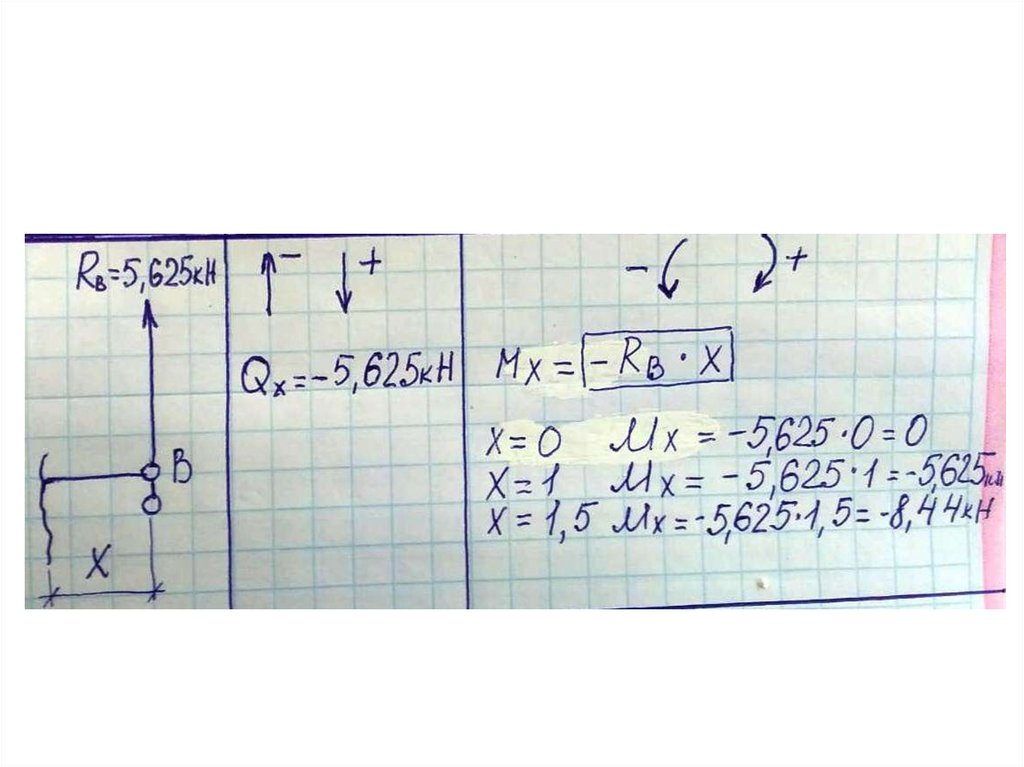 Rв=5,625кН
В
X
- +
Qx=-5,625кН
- +
Mx = -Rв · X
X=0 Mx = -5,625·0=0
X=1 Mx = -5,625·1=-5,625кН
X=1,5 Mx=-5,625·1,5=-8,44кН